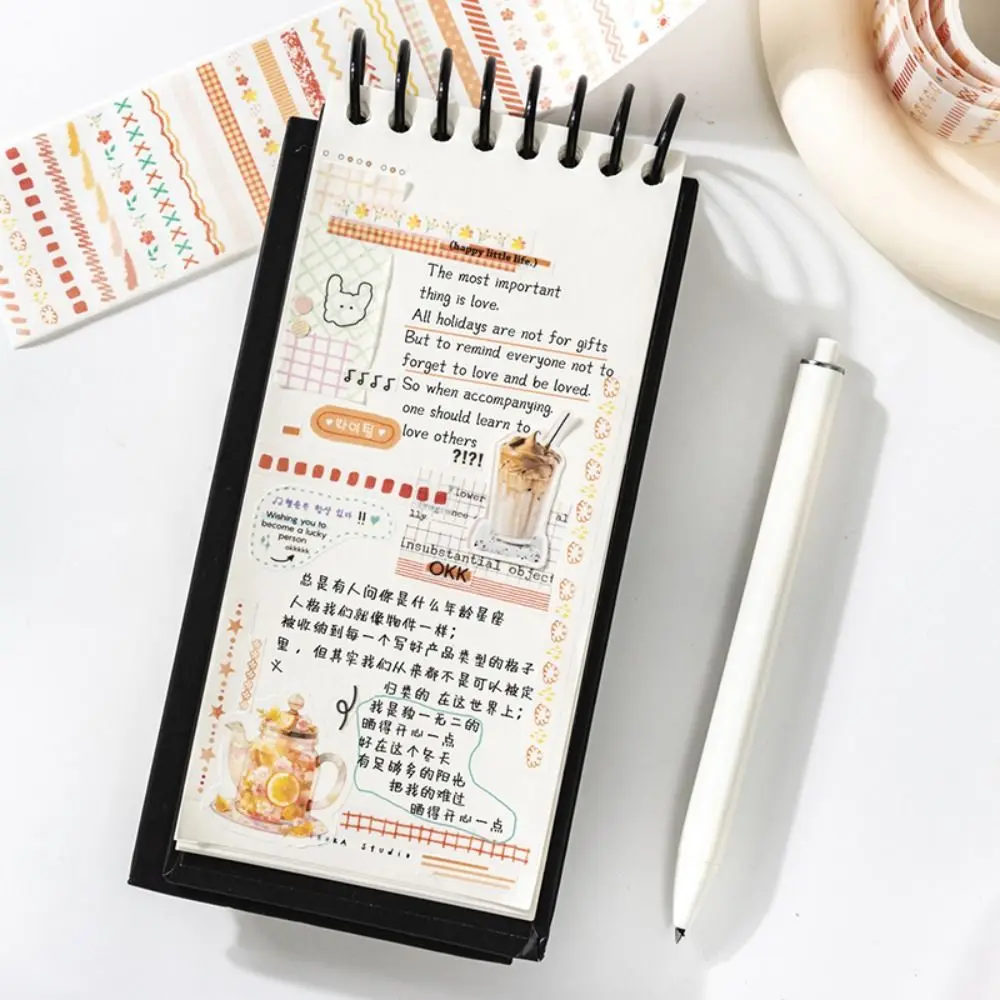 (happy little life.)
The most important
thing is love.
All holidays are not for gifts
But to remind everyone not to
forget to love and be loved.
So when accompanying.
one should learn to
love others
?!?!
화이팅
Flower
lly
al
insubstantial object
OKK
행운은 항상 있다 !!
Wishing you to
become a lucky
person
okkkkk
总是有人问你是什么年龄星座
人格我们就像物件一样；
被收纳到每一个写好产品类型的格子
里，但其实我们从来都不是可以被定
义
归类的 在这世界上；
我是独一无二的
晒得开心一点
好在这个冬天
有足够多的阳光
把我的难过
晒得开心一点
Studio